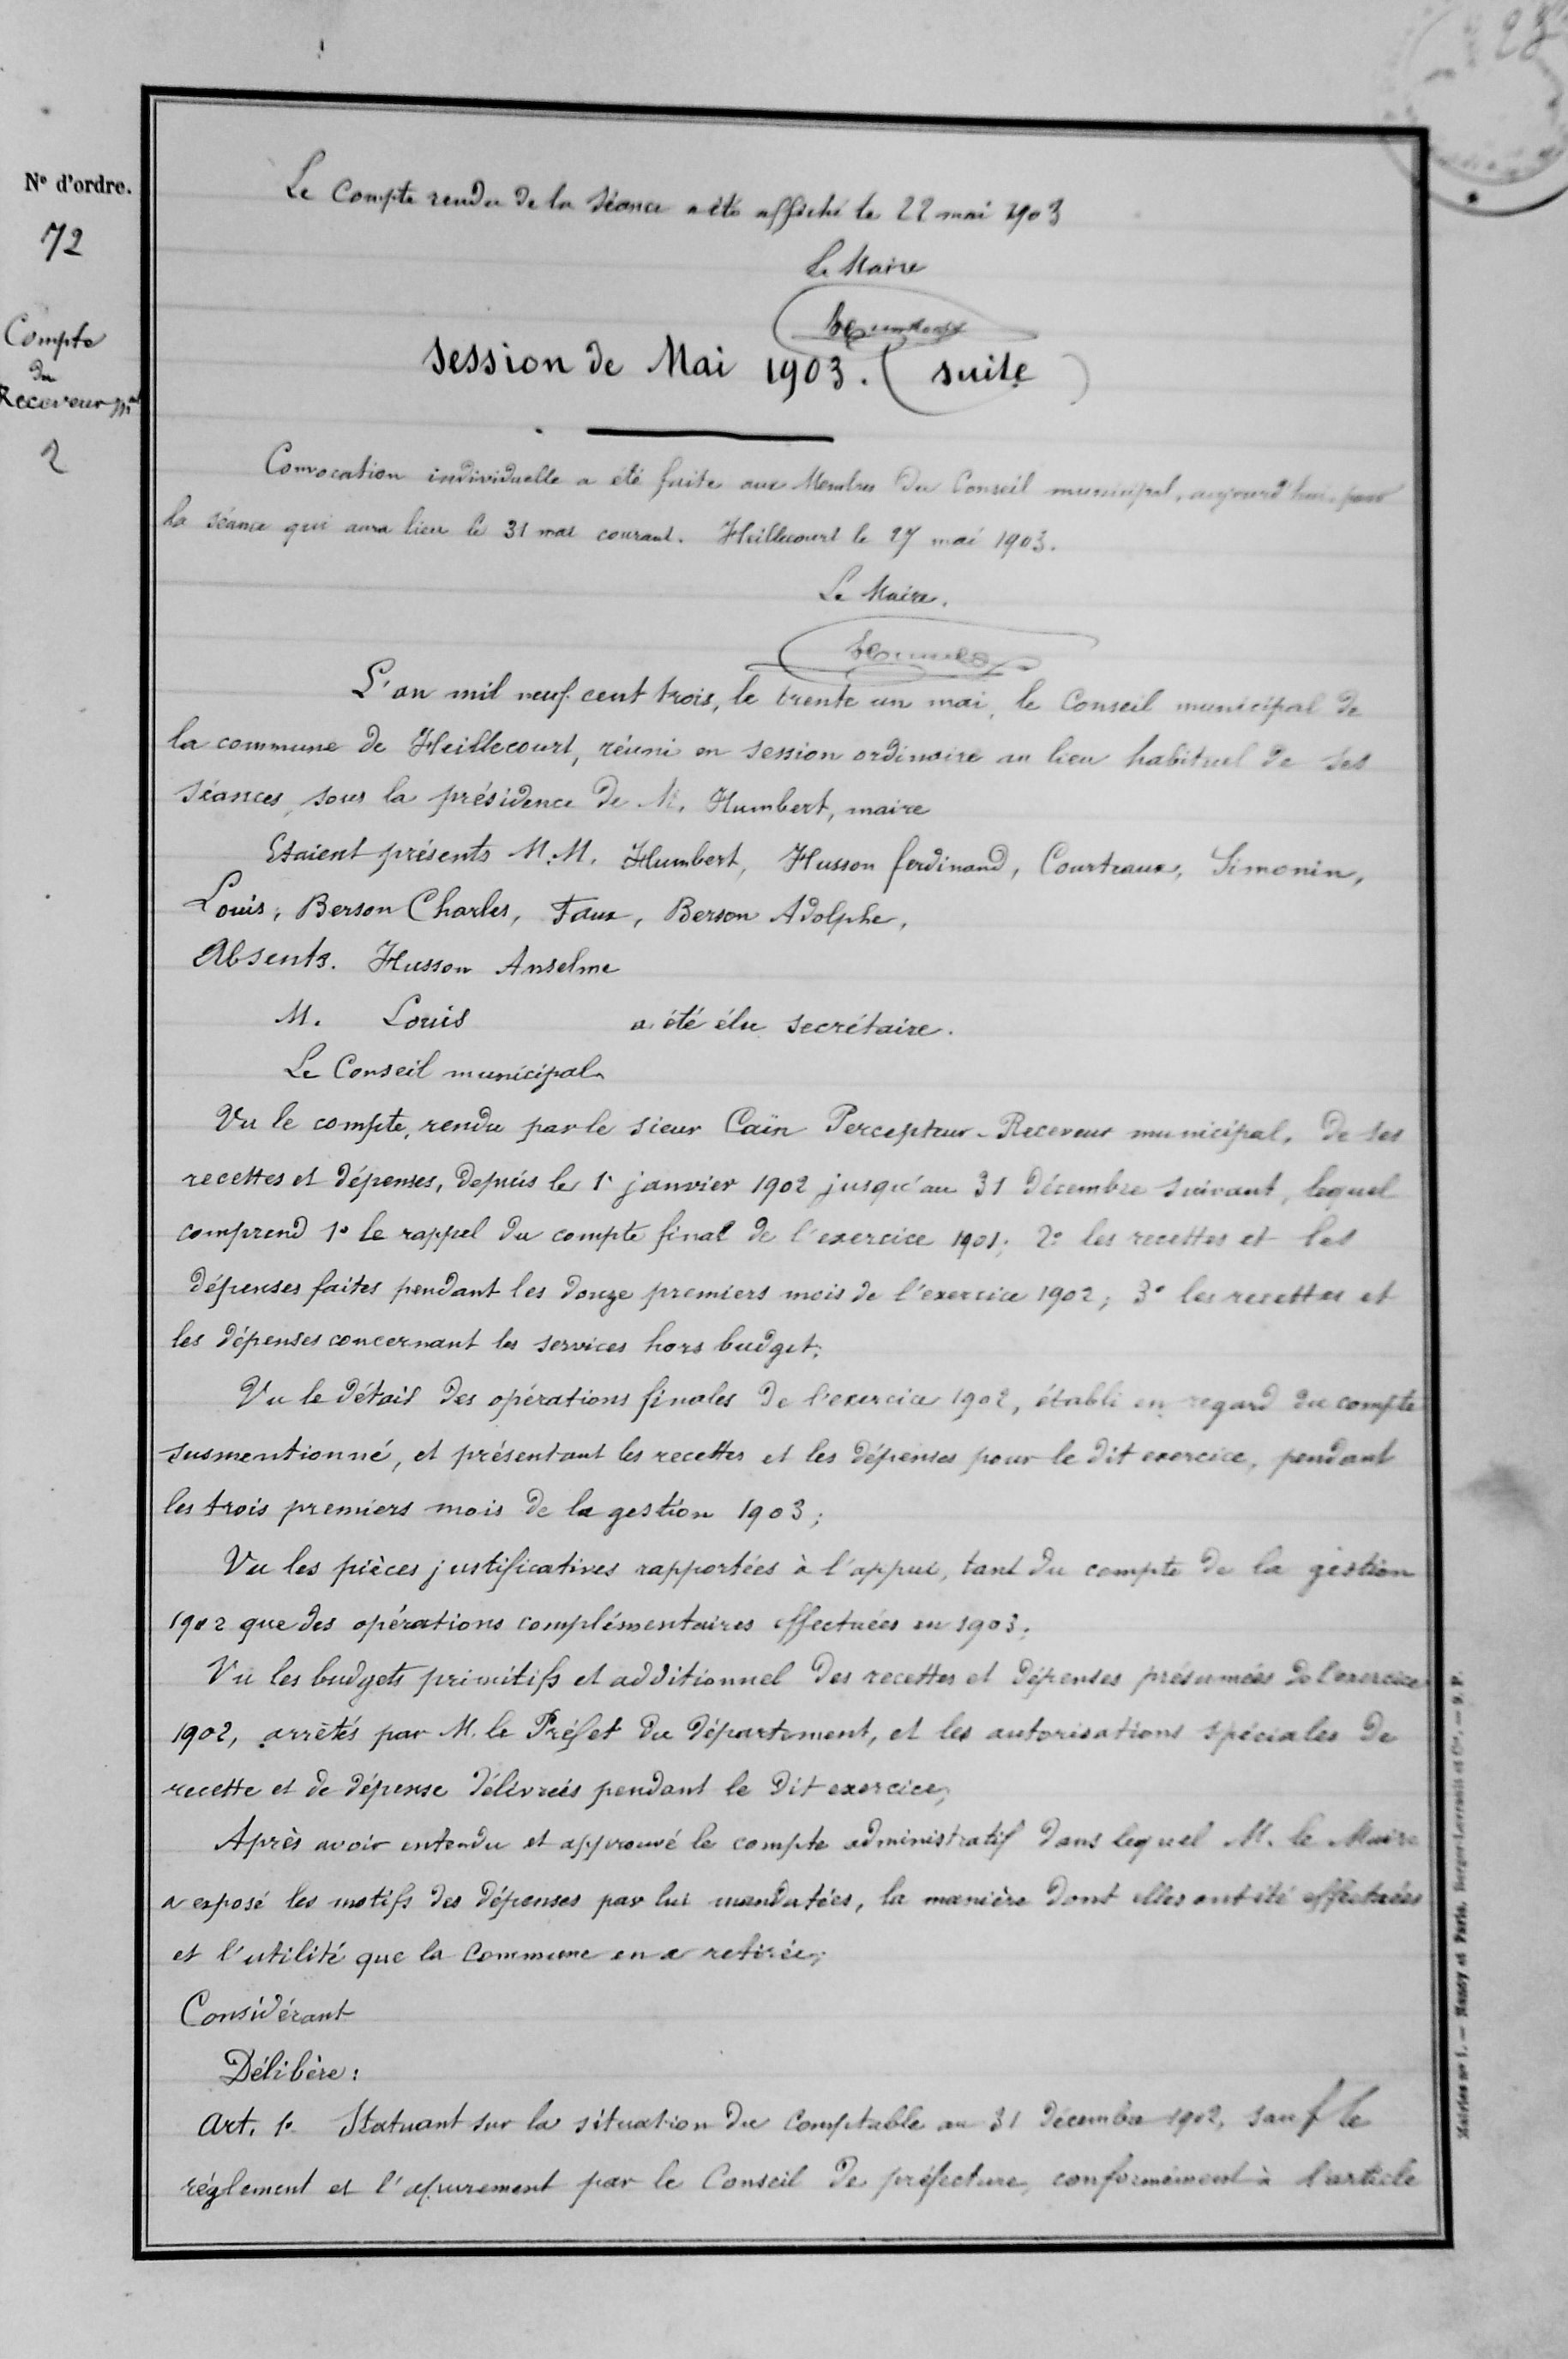 28
N° d'ordre.
72
Compte
du
Receveur Mal
2
Le Compte rendu de la séance a été affiché le 22 mai 1903
Le Maire
Session de Mai 1903. (suite)
Convocation individuelle a été faite aux Membres du Conseil municipal, aujourd'hui, pour
la séance qui aura lieu le 31 mai courant. Heillecourt le 27 mai 1903.
Le Maire.
L'an mil neuf cent trois, le trente un mai, le Conseil municipal de
la commune de Heillecourt, réuni en session ordinaire au lieu habituel de ses
séances, sous la présidence de M. Humbert, maire
Etaient présents M.M. Humbert, Husson ferdinand, Courteaux, Simonin,
Louis, Berson Charles, Faux, Berson Adolphe,
Absents. Husson Anselme
M. Louis a été élu secrétaire.
Le Conseil municipal
Vu le compte, rendu par le sieur Caïn Percepteur-Receveur municipal, de ses
recettes et dépenses, depuis le 1r janvier 1902 jusqu'au 31 décembre suivant, lequel
comprend 1° le rappel du compte final de l'exercice 1901; 2° les recettes et les
dépenses faites pendant les douze premiers mois de l'exercice 1902; 3° les recettes et
les dépenses concernant les services hors budget;
Vu le détail des opérations finales de l'exercice 1902, établi en regard du compte
susmentionné, et présentant les recettes et les dépenses pour le dit exercice, pendant
les trois premiers mois de la gestion 1903;
Vu les pièces justificatives rapportées à l'appui, tant du compte de la gestion
1902 que des opérations complémentaires effectuées en 1903;
Vu les budgets primitifs et additionnel des recettes et dépenses présumées de l'exercice
1902, arrêtés par M. le Préfet du département, et les autorisations spéciales de
recette et de dépense délivrées pendant le dit exercice;
Après avoir entendu et approuvé le compte administratif dans lequel M. le Maire
a exposé les motifs des dépenses par lui mandatées, la manière dont elles ont été effectuées
et l'utilité que la Commune en a retirée;
Considérant
Délibère:
Art. 1° Statuant sur la situation du Comptable au 31 décembre 1902, sauf le
règlement et l'apurement par le Conseil de préfecture, conformément à l'article
Mairies n° 1. — Nancy et Paris, Berger-Levrault et Cie.